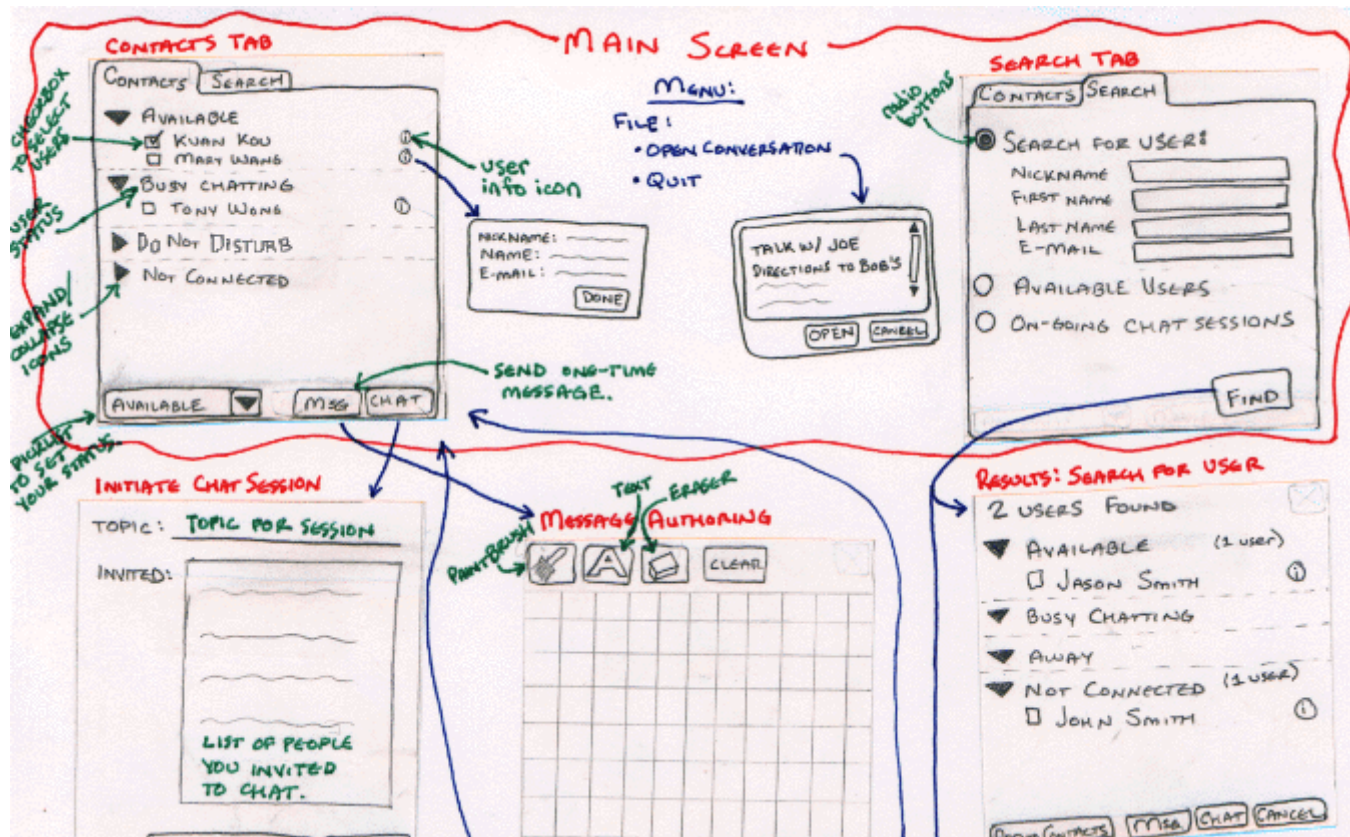 MAIN SCREEN
CONTACTS TAB
CONTACTS SEARCH
AVAILABLE
KUAN KOU
MARY WANG
BUSY CHATTING
TONY WONG
DO NOT DISTURB
NOT CONNECTED
AVAILABLE
MSG
CHAT
CHECKBOX
TO SELECT
USERS
USER
STATUS
EXPAND/
COLLAPSE
ICONS
PICKLIST
TO SET
YOUR STATUS.
user
info icon
SEND ONE-TIME
MESSAGE.
MENU:
FILE:
• OPEN CONVERSATION
• QUIT
NICKNAME:
NAME:
E-MAIL:
DONE
TALK W/ JOE
DIRECTIONS TO BOB'S
OPEN CANCEL
SEARCH TAB
radio
buttons
CONTACTS SEARCH
SEARCH FOR USER:
NICKNAME
FIRST NAME
LAST NAME
E-MAIL
AVAILABLE USERS
ON-GOING CHAT SESSIONS
FIND
INITIATE CHAT SESSION
TOPIC: TOPIC FOR SESSION
INVITED:
LIST OF PEOPLE
YOU INVITED
TO CHAT.
MESSAGE AUTHORING
PAINTBRUSH
TEXT
ERASER
A
CLEAR
RESULTS: SEARCH FOR USER
2 USERS FOUND
AVAILABLE (1 user)
JASON SMITH
BUSY CHATTING
AWAY
NOT CONNECTED (1 USER)
JOHN SMITH
CONTACTS MSG CHAT CANCEL